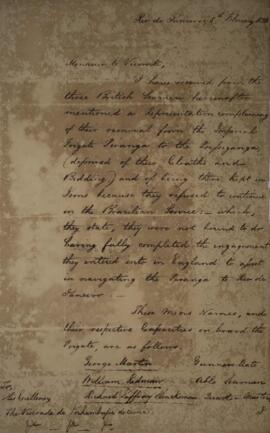 Rio de Janeiro 6th February 18
Monsieur le Vicomte,
I have received from the
three British Seamen hereinafter
mentioned a representation complaining
of their removal from the Imperial
Frigate Piranga to the Preseganga,
(deprived of their Cloaths and
Bedding) and of being there kept in
Irons because they refused to continue
in the Brazilian Service: – which,
they state, they were not bound to do
having fully completed the engagement
they entered into in England to assist
in navigating the Piranga to Rio de
Janeiro. –
These Mens Names, and
their respective Capacities on board the
Frigate, are as follows.
George Martin Gunners Mate
William Redman Able Seaman
Richard Quarter Master
To
His Excellency
The Viscount de Inhambupe